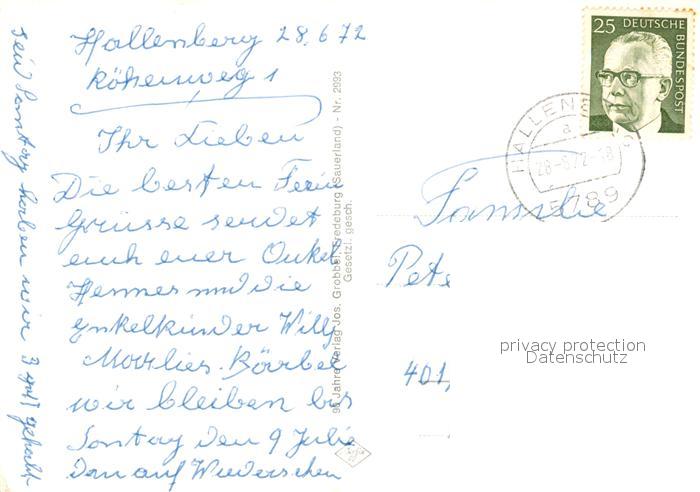 Hallenberg 28.6.72
Röhenweg 1
Ihr Lieben
Die besten Ferin
Grüsse sendet
euch euer Onkel
Hermes und die
Enkelkinder Willy
Marlies. Bärbel
wir bleiben bis
Sontag den 9 Julie
dan auf Wiedersehen
seid Samtag haben wir 3 gehabt
95 Jahre Verlag Jos. Grobbel, Fredeburg (Sauerland) - Nr. 2993
Gesetzl. gesch.
25 DEUTSCHE BUNDESPOST
HALLENB
a
28-6.72-18
5789
Familie
Pete
401,
privacy protection
Datenschutz